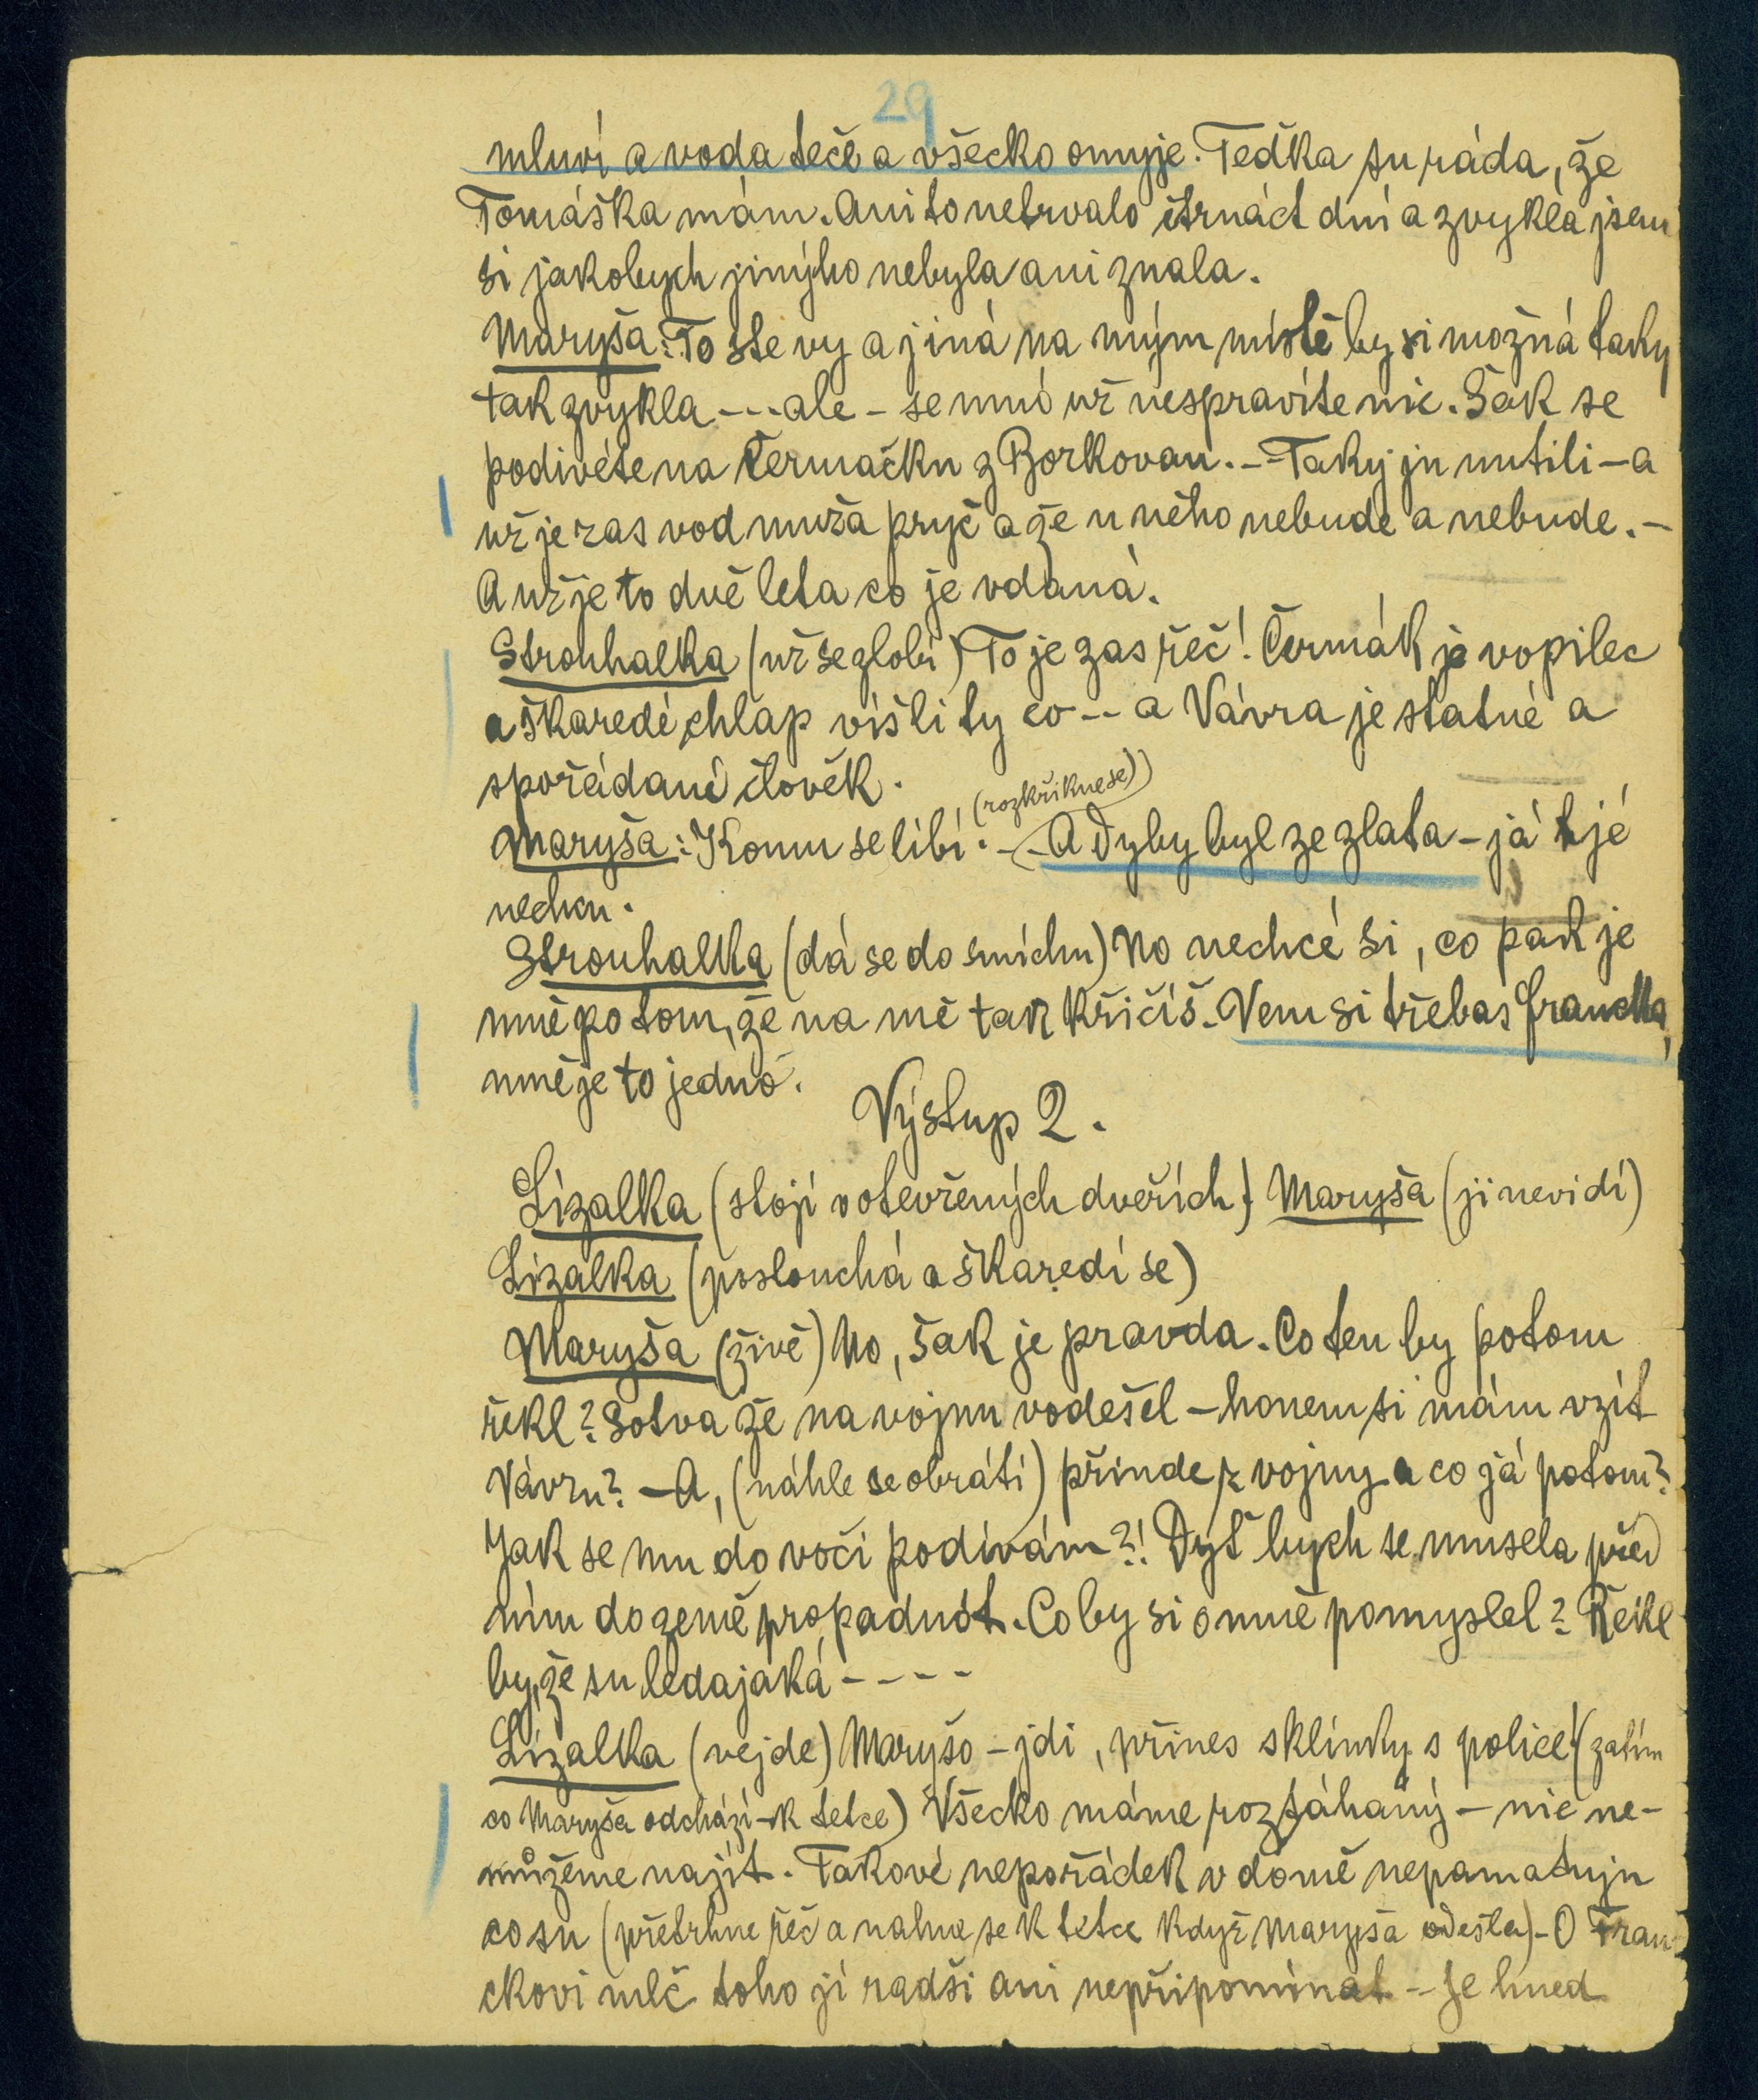 29
mluví a voda teče a všecko omyje. Teďka su ráda, že
Tomáška mám. Ani to netrvalo štrnáct dní a zvykla jsem
si jakobych jinýho nebyla ani znala.
Maryša: To ste vy a jiná na mým místě by si možná taky
tak zvykla --- ale - se mnó už nespravíte nic. Šak se
podivéte na Čermačku z Borkovan. -- Taky ju nutili - a
už je zas vod muža pryč a že u něho nebude a nebude. -
A už je to dvě leta co je vdaná.
Strouhalka (už se zlobí) To je zas řeč! Čermák je vopilec
a škaredé chlap víš li ty co -- a Vávra je statné a
spořádané člověk.
(rozkřikne se))
Maryša: Komu se líbí. -- A dyby byl ze zlata - já ho
nechcu.
Strouhalka (dá se do smíchu) No nechcé si, co pak je
mně po tom, že na mě tak křičíš. Vem si třebas Francka,
mně je to jednó.
Výstup 2.
Lízalka (stojí v otevřených dveřích) Maryša (ji nevidí)
Lízalka (poslouchá a škaredí se)
Maryša (živě) No, šak je pravda. Co ten by potom
řekl? Sotva že na vojnu vodešel - honem si mám vzít
Vávru? - A, (náhle se obrátí) přinde z vojny a co já potom?
Jak se mu do vočí podívám?! Dyť bych se musela před
ním do země propadnót. Co by si o mně pomyslel? Řekl
by, že su ledajaká ----
Lízalka (vejde) Maryšo - jdi, přines sklínky s police! (zatím
co Maryša odchází - k tetce) Všecko máme roztáhaný - nic ne-
můžeme najít. Takové nepořádek v domě nepamatuju
co su (přetrhne řeč a nahne se k tetce když Maryša odešla) - O Fran-
ckovi mlč toho jí radši ani nepřipomínat - Je hned